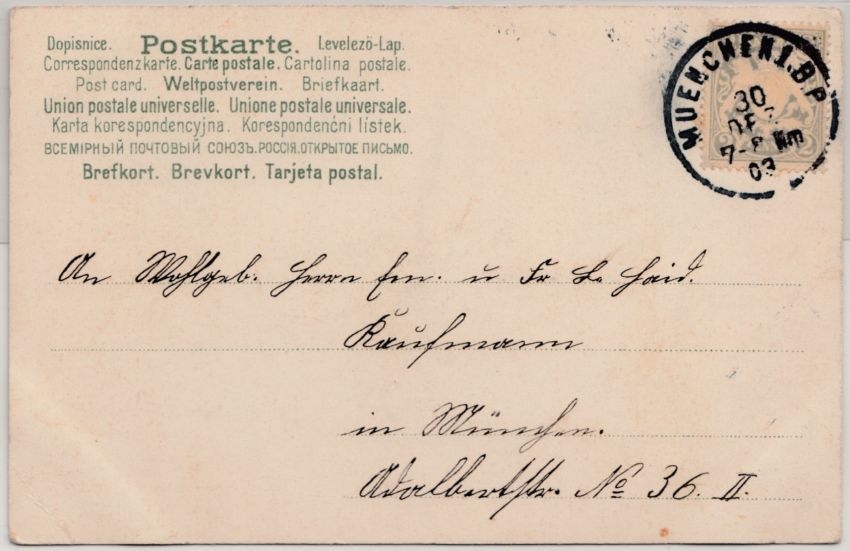 Dopisnice. Postkarte. Levelezö-Lap.
Correspondenzkarte. Carte postale. Cartolina postale.
Post card. Weltpostverein. Briefkaart.
Union postale universelle. Unione postale universale.
Karta korespondencyjna. Korespondenční lístek.
ВСЕМІРНЫЙ ПОЧТОВЫЙ СОЮЗЪ. РОССІЯ. ОТКРЫТОЕ ПИСЬМО.
Brefkort. Brevkort. Tarjeta postal.
MUENCHEN 1. B.P.
30
DEZ.
7-8 NM
03
An Wohlgeb. Herrn Em. u Fr L. Haid.
Kaufmann
in München.
Adalbertstr. No 36. II.